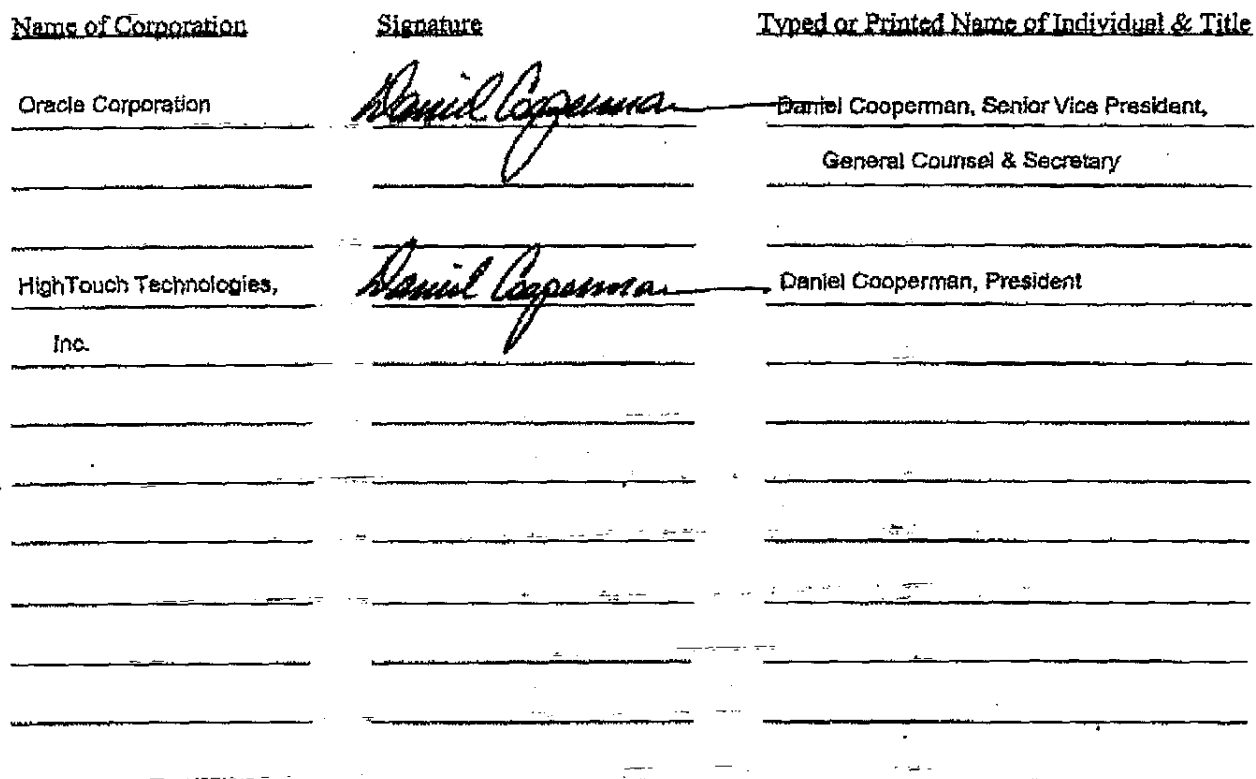 Name of Corporation Signature Typed or Printed Name of Individual & Title
Oracle Corporation Daniel Cooperman Daniel Cooperman, Senior Vice President,
General Counsel & Secretary
HighTouch Technologies, Daniel Cooperman Daniel Cooperman, President
Inc.